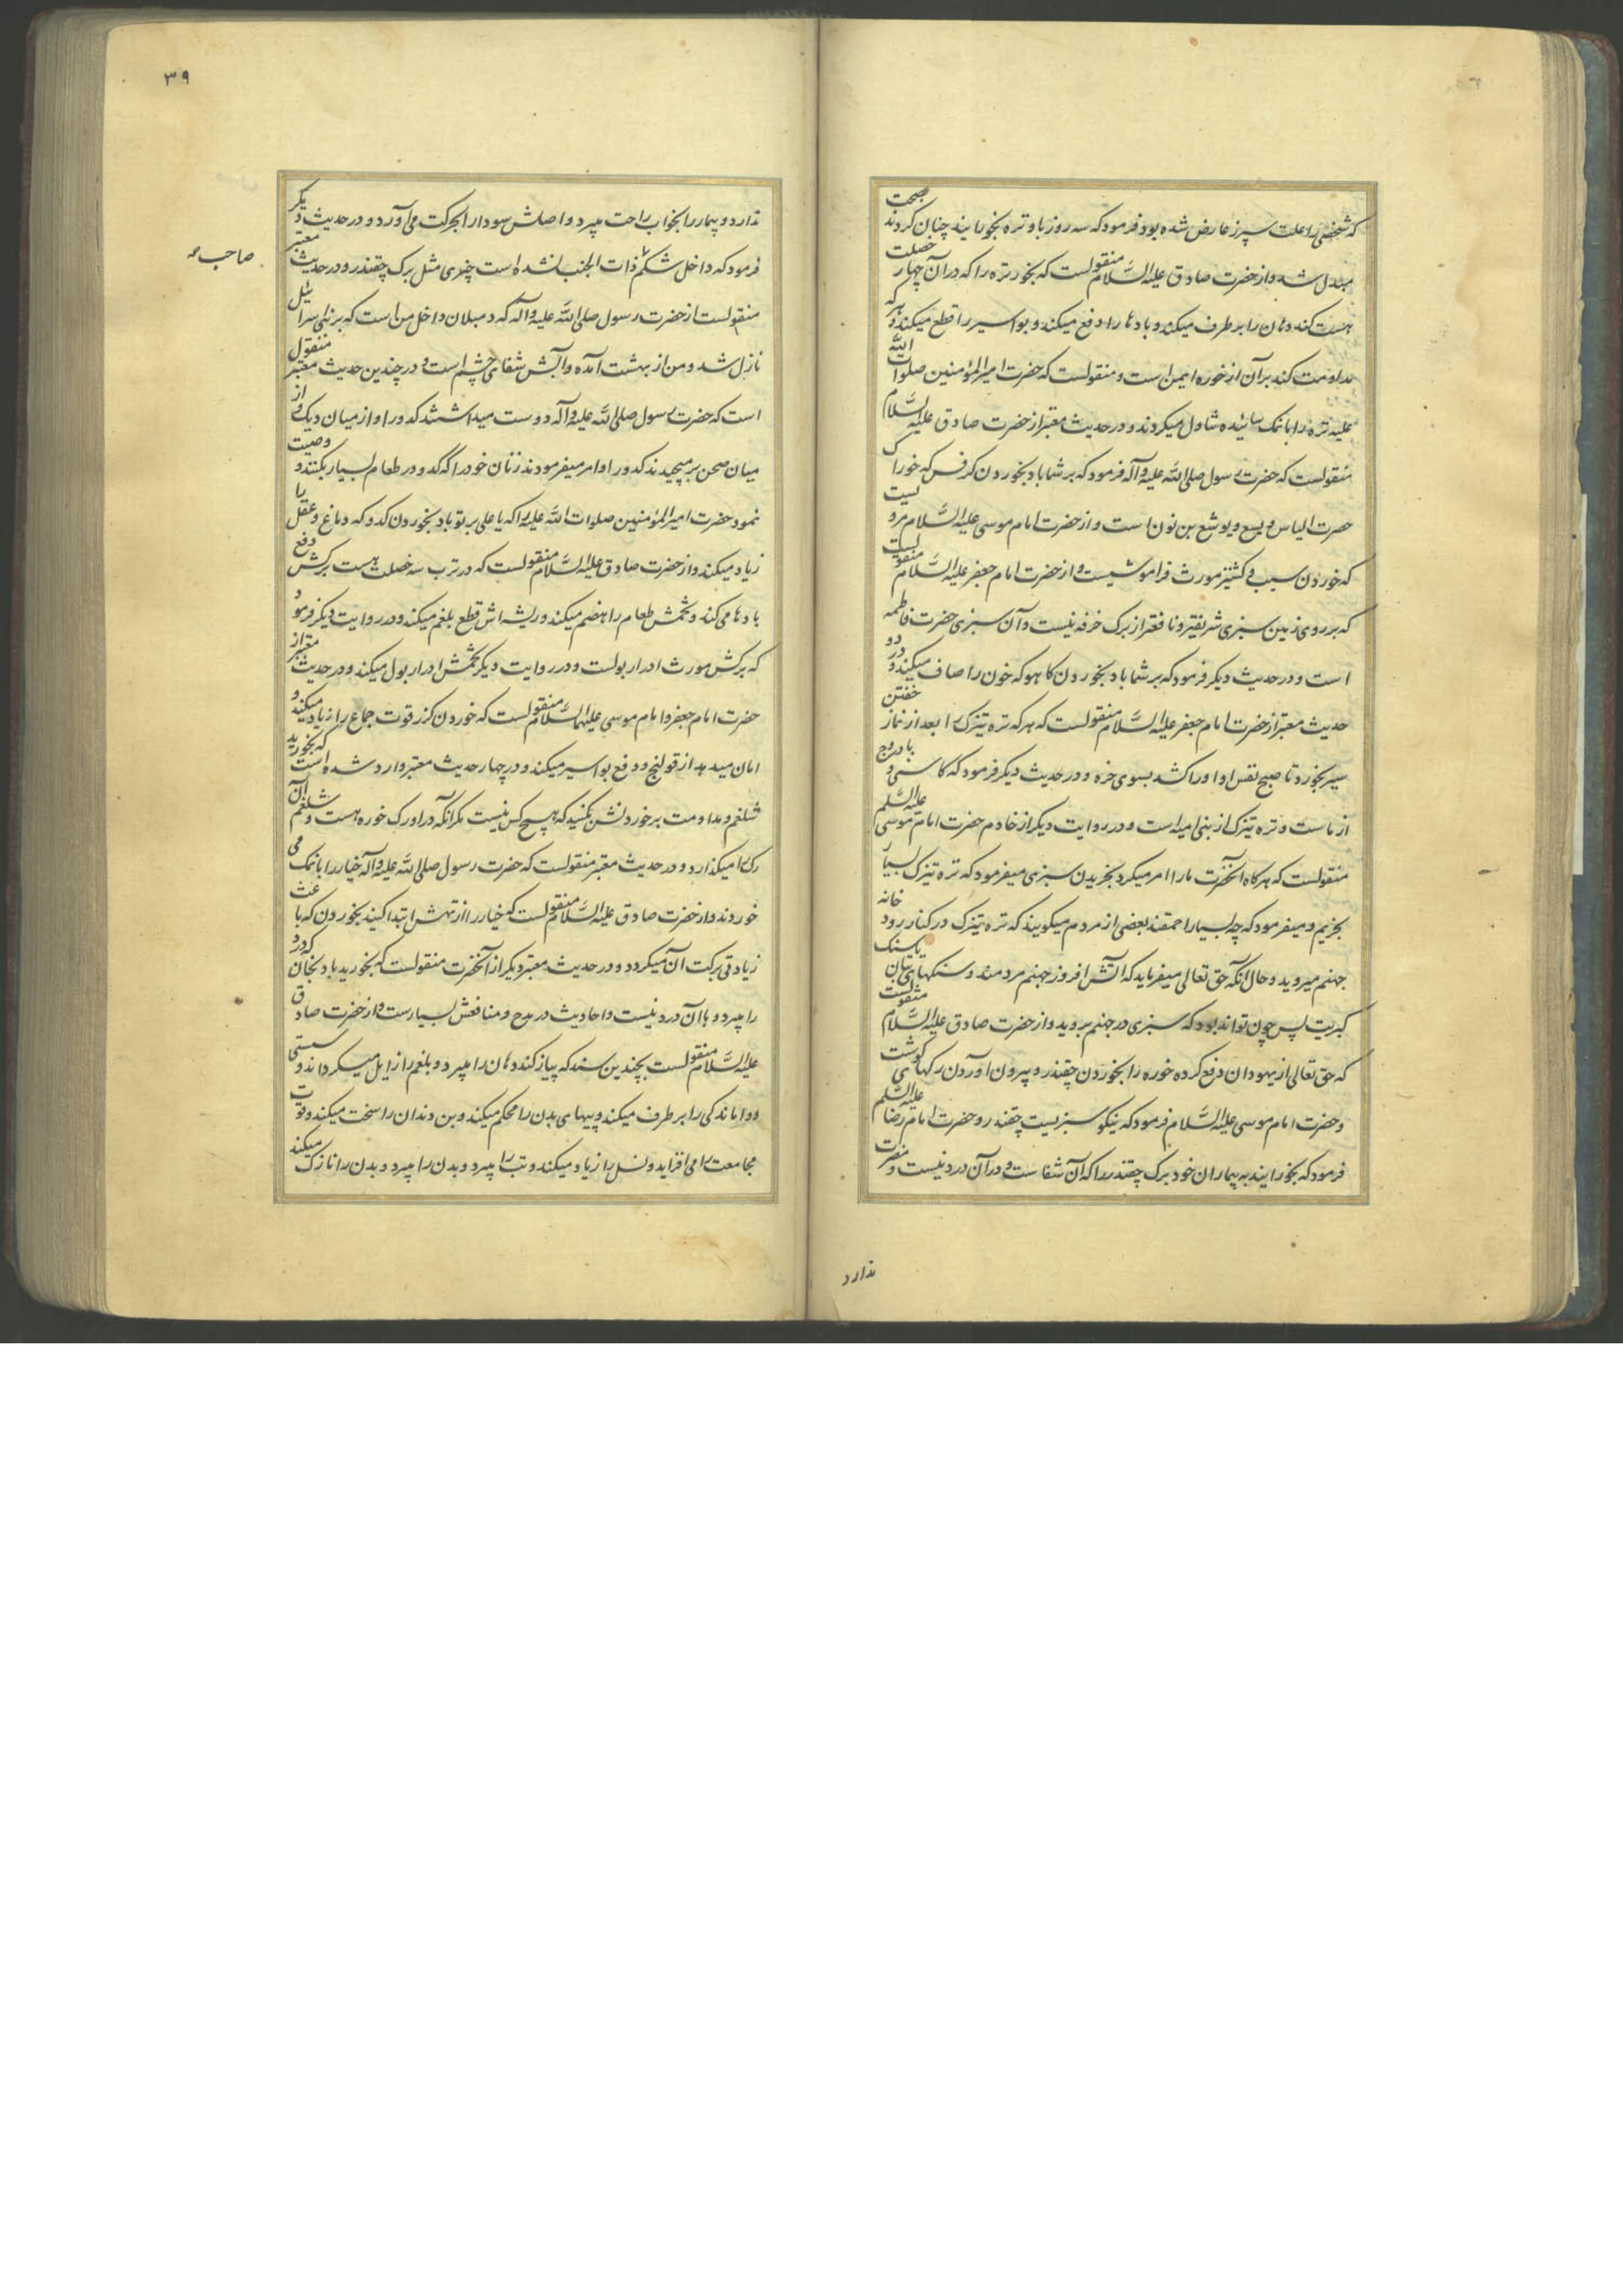 که شخصی را علت سپرز عارض شده بود فرمود که سه روز باو تره بخورانید چنان کردند صحت
مبدل شد و از حضرت صادق علیه السَّلام منقولست که بخور تره را که در آن چهار خصلت
هست کند دهان را بر طرف میکند و بادها را دفع میکند و بواسیر را قطع میکند و هر که
مداومت کند بر آن از خوره ایمن است و منقولست که حضرت امیرالمؤمنین صلوات الله
علیه تره را با نمک سائیده تناول میکردند و در حدیث معتبر از حضرت صادق علیه السَّلام
منقولست که حضرت رسول صلی الله علیه و آله فرمود که بر شما باد بخوردن کرفس که خوراک
حضرت الیاس و یسع و یوشع بن نون است و از حضرت امام موسی علیه السَّلام مرویست
که خوردن سیب و کشنیز مورث فراموشیست و از حضرت امام جعفر علیه السَّلام منقولست
که بر روی زمین سبزی شریفتر و نافعتر از برک خرفه نیست و آن سبزی حضرت فاطمه
است و در حدیث دیکر فرمود که بر شما باد بخوردن کاهو که خون را صاف میکند و در
حدیث معتبر از حضرت امام جعفر علیه السَّلام منقولست که هر که تره تیزک را بعد از نماز خفتن
سیر بخورد تا صبح نفس او اورا کشد بسوی خوره و در حدیث دیکر فرمود که کاسنی و بادروج
از ماست و تره تیزک از بنی امیه است و در روایت دیکر از خادم حضرت امام موسی علیه السلم
منقولست که هر کاه آنحضرت مارا امر میکرد بخریدن سبزی میفرمود که تره تیزک بسیار
بخریم و میفرمود که چه بسیار احمقند بعضی از مردم میکویند که تره تیزک در کنار رود خانه
جهنم میروید و حال آنکه حق تعالی میفرماید که آتش افروز جهنم مردمند و سنکهای بتان یا سنک
کبریت پس چون تواند بود که سبزی در جهنم بروید و از حضرت صادق علیه السَّلام منقولست
که حق تعالی از یهودان دفع کرده خوره را بخوردن چقندر و بیرون آوردن رکهای کوشت
و حضرت امام موسی علیه السَّلام فرمود که نیکو سبزیست چقندر و حضرت امام رضا علیه السلم
فرمود که بخورانید به بیماران خود برک چقندر را که آن شفاست و در آن درد نیست و مضرت
ندارد
۳۹
ندارد و بیمار را بخواب راحت میبرد و اصلش سودا را بحرکت می آورد و در حدیث دیکر
فرمود که داخل شکم ذات الجنب نشده است چیزی مثل برک چقندر و در حدیث معتبر
صاحب
منقولست از حضرت رسول صلی الله علیه و آله که دمبلان داخل من است که بر بنی اسرائیل
نازل شد و من از بهشت آمده و آبش شفای چشم است و در چندین حدیث معتبر منقول
است که حضرت رسول صلی الله علیه و آله دوست میداشتند کدو را و از میان دیک و از
میان صحن بر میچیدند کدو را و امر میفرمودند زنان خود را که کدو در طعام بسیار بکنند و وصیت
نمود حضرت امیرالمؤمنین صلوات الله علیه را که یا علی بر تو باد بخوردن کدو که دماغ و عقل را
زیاد میکند و از حضرت صادق علیه السَّلام منقولست که در ترب سه خصلت هست برکش دفع
بادها می کند و تخمش طعام را هضم میکند و ریشه اش قطع بلغم میکند و در روایت دیکر فرمود
که برکش مورث ادرار بولست و در روایت دیکر تخمش ادرار بول میکند و در حدیث معتبر از
حضرت امام جعفر و امام موسی علیهما السَّلام منقولست که خوردن کزر قوت جماع را زیاد میکند و
امان میدهد از قولنج و دفع بواسیر میکند و در چهار حدیث معتبر وارد شده است که بخورید
شلغم و مداومت بر خوردنش بکنید که هیچ کس نیست مکر آنکه در او رک خوره هست و شلغم آن
رک را میکدازد و در حدیث معتبر منقولست که حضرت رسول صلی الله علیه و آله خیار را با نمک می
خوردند و از حضرت صادق علیه السَّلام منقولست که خیار را از تهش ابتدا کنید بخوردن که باعث
زیادتی برکت آن میکردد و در حدیث معتبر دیکر از آنحضرت منقولست که بخورید بادنجان که درد
را میبرد و با آن درد نیست و احادیث در مدح و منافعش بسیارست و از حضرت صادق
علیه السَّلام منقولست بچندین سند که پیاز کند دهان را میبرد و بلغم را زایل میکرداند و سستی
و واماندکی را بر طرف میکند و پیهای بدن را محکم میکند و بن دندان را سخت میکند و قوت
مجامعت را می افزاید و نسل را زیاد میکند و تب را میبرد و بدن را میبرد و بدن را نازک میکند